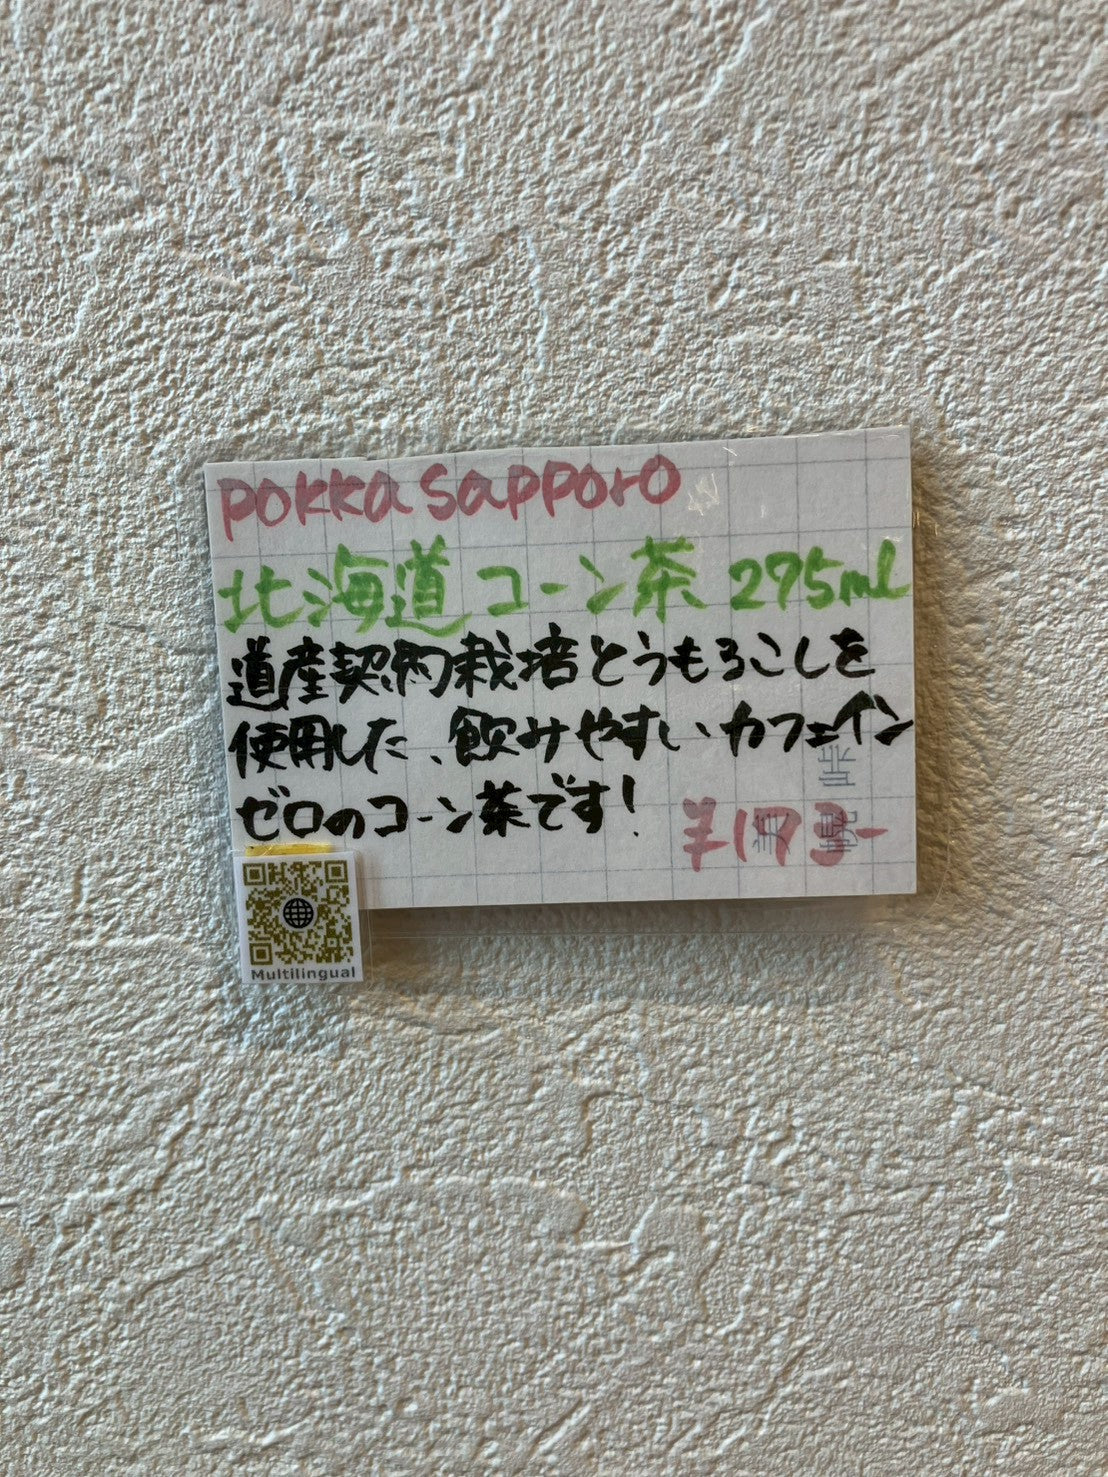 pokka sapporo
北海道コーン茶 275ml
道産契約栽培とうもろこしを
使用した、飲みやすいカフェイン
ゼロのコーン茶です!
¥173-
Multilingual